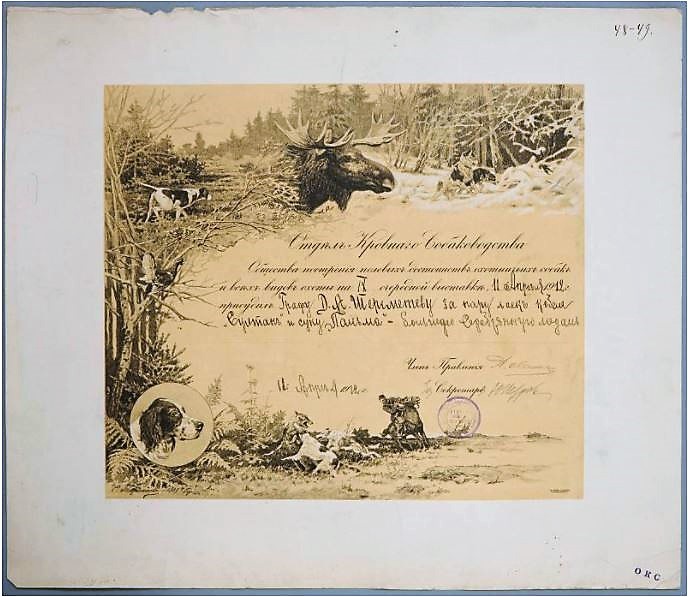 48-49.
Отдѣлъ Кровнаго Собаководства
Общества поощренія полевыхъ достоинствъ охотничьихъ собакъ
и всѣхъ видовъ охоты на IV очередной выставкѣ, 11 Апрѣля 1912.
присудилъ Графу Д. А. Шереметеву за пару лаекъ кобеля
"Султанъ" и суку "Пальма" - Большую Серебрянную медаль
Членъ Правленія
11 Апрѣля 1912
Секретарь
ОКС